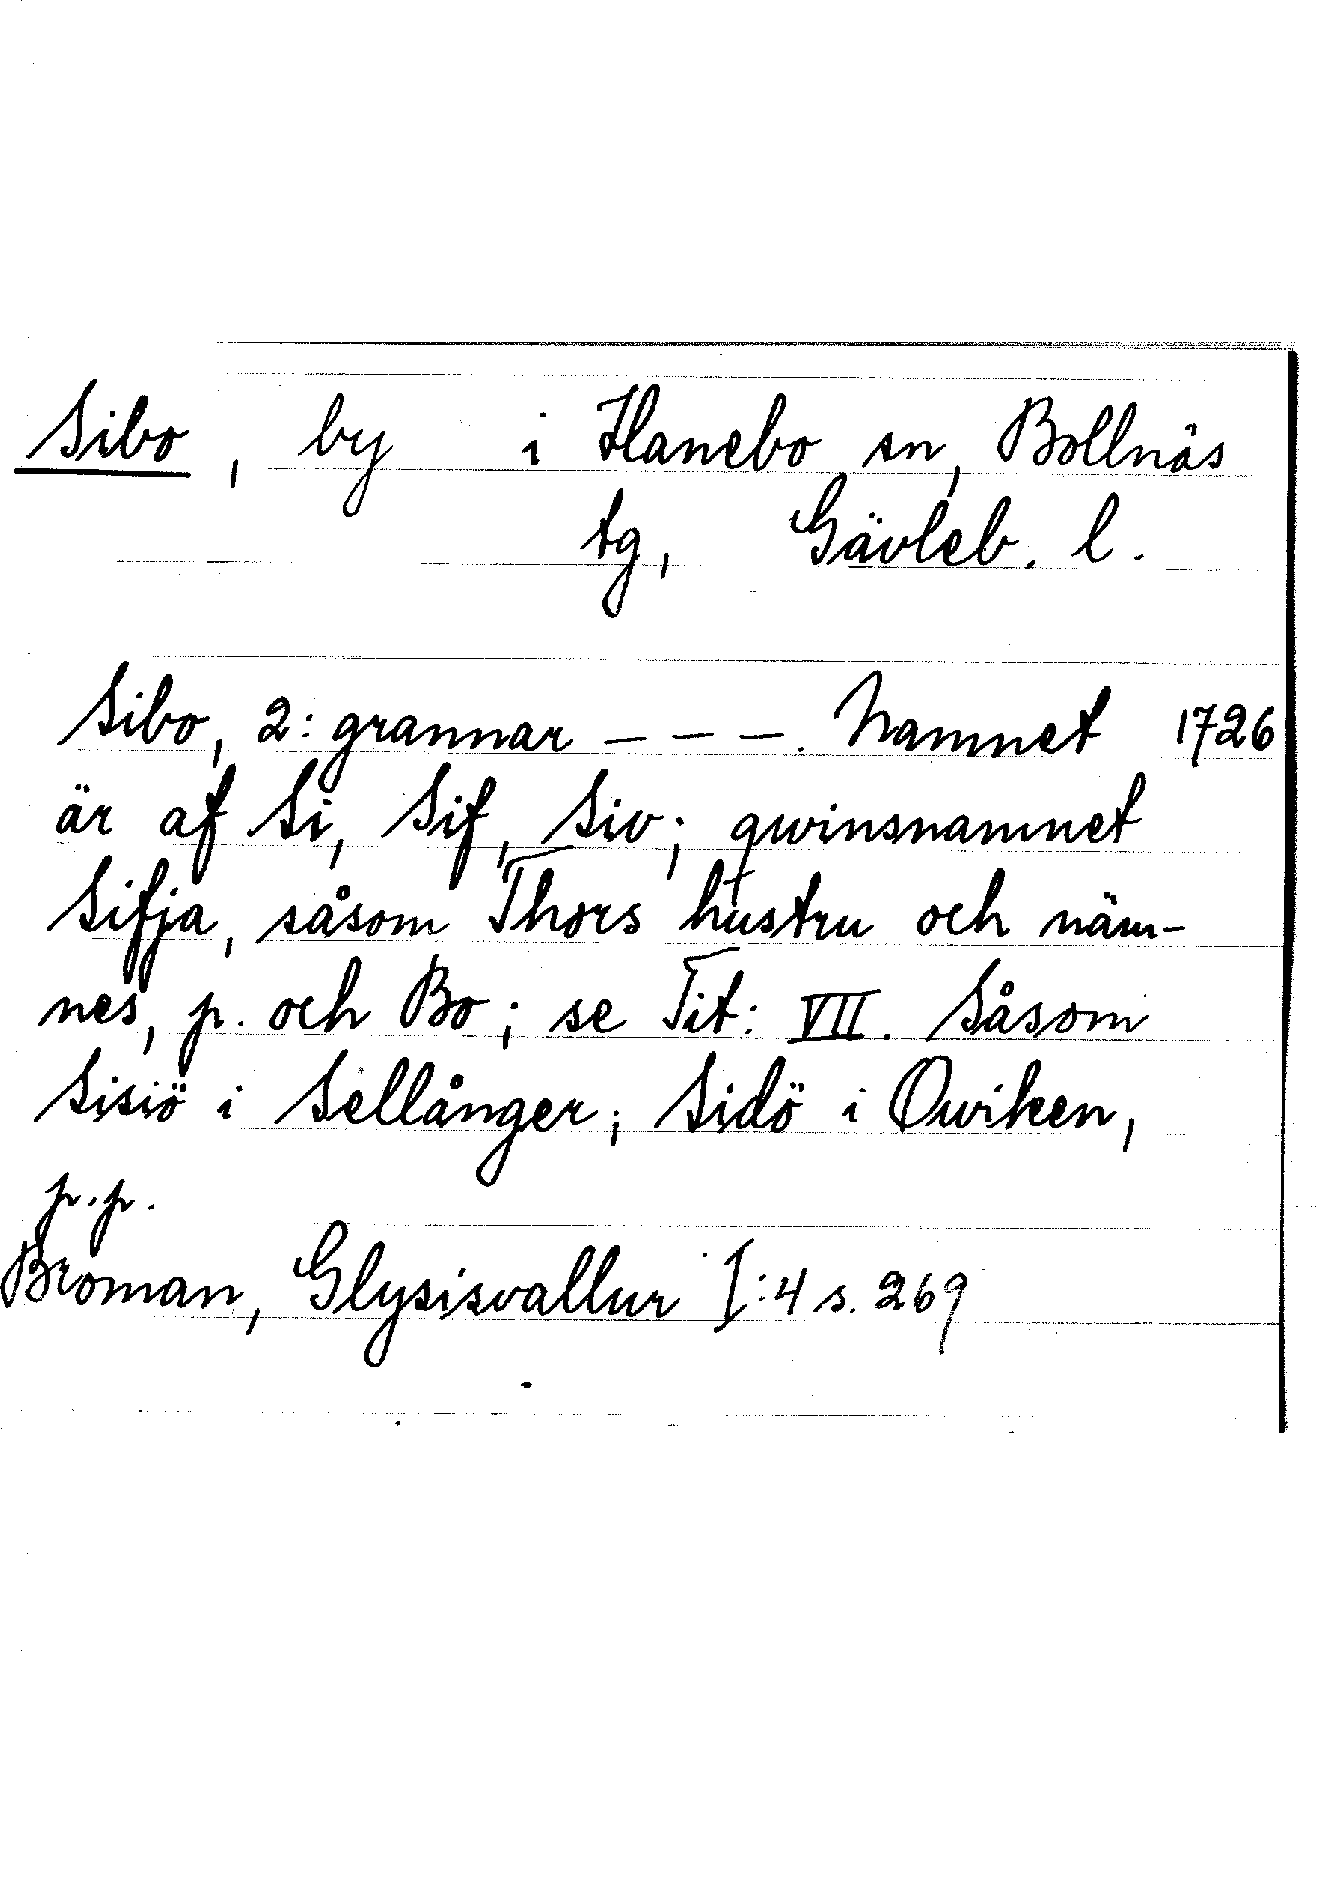 Sibo, by i Hanebo sn, Bollnäs
tg, Gävleb. l.
Sibo, 2: grannar – – –. Namnet 1726
är af Si, Sif, Siv; qwinsnamnet
Sifja, såsom Thors hustru och näm-
nes, p. och Bo; se Tit: VII. Såsom
Sisiö i Sellånger; Sidö i Qwiken,
p.p.
Broman, Glysisvallur I:4 s. 269